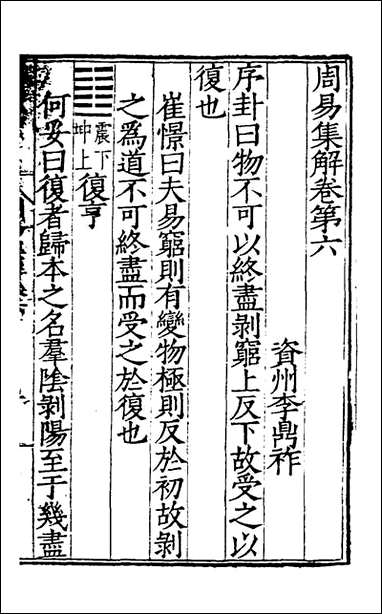 周易集解卷第六
資州李鼎祚
序卦曰物不可以終盡剥窮上反下故受之以
復也
崔憬曰夫易窮則有變物極則反於初故剥
之爲道不可終盡而受之於復也
震下
坤上
復亨
何妥曰復者歸本之名羣陰剥陽至于幾盡